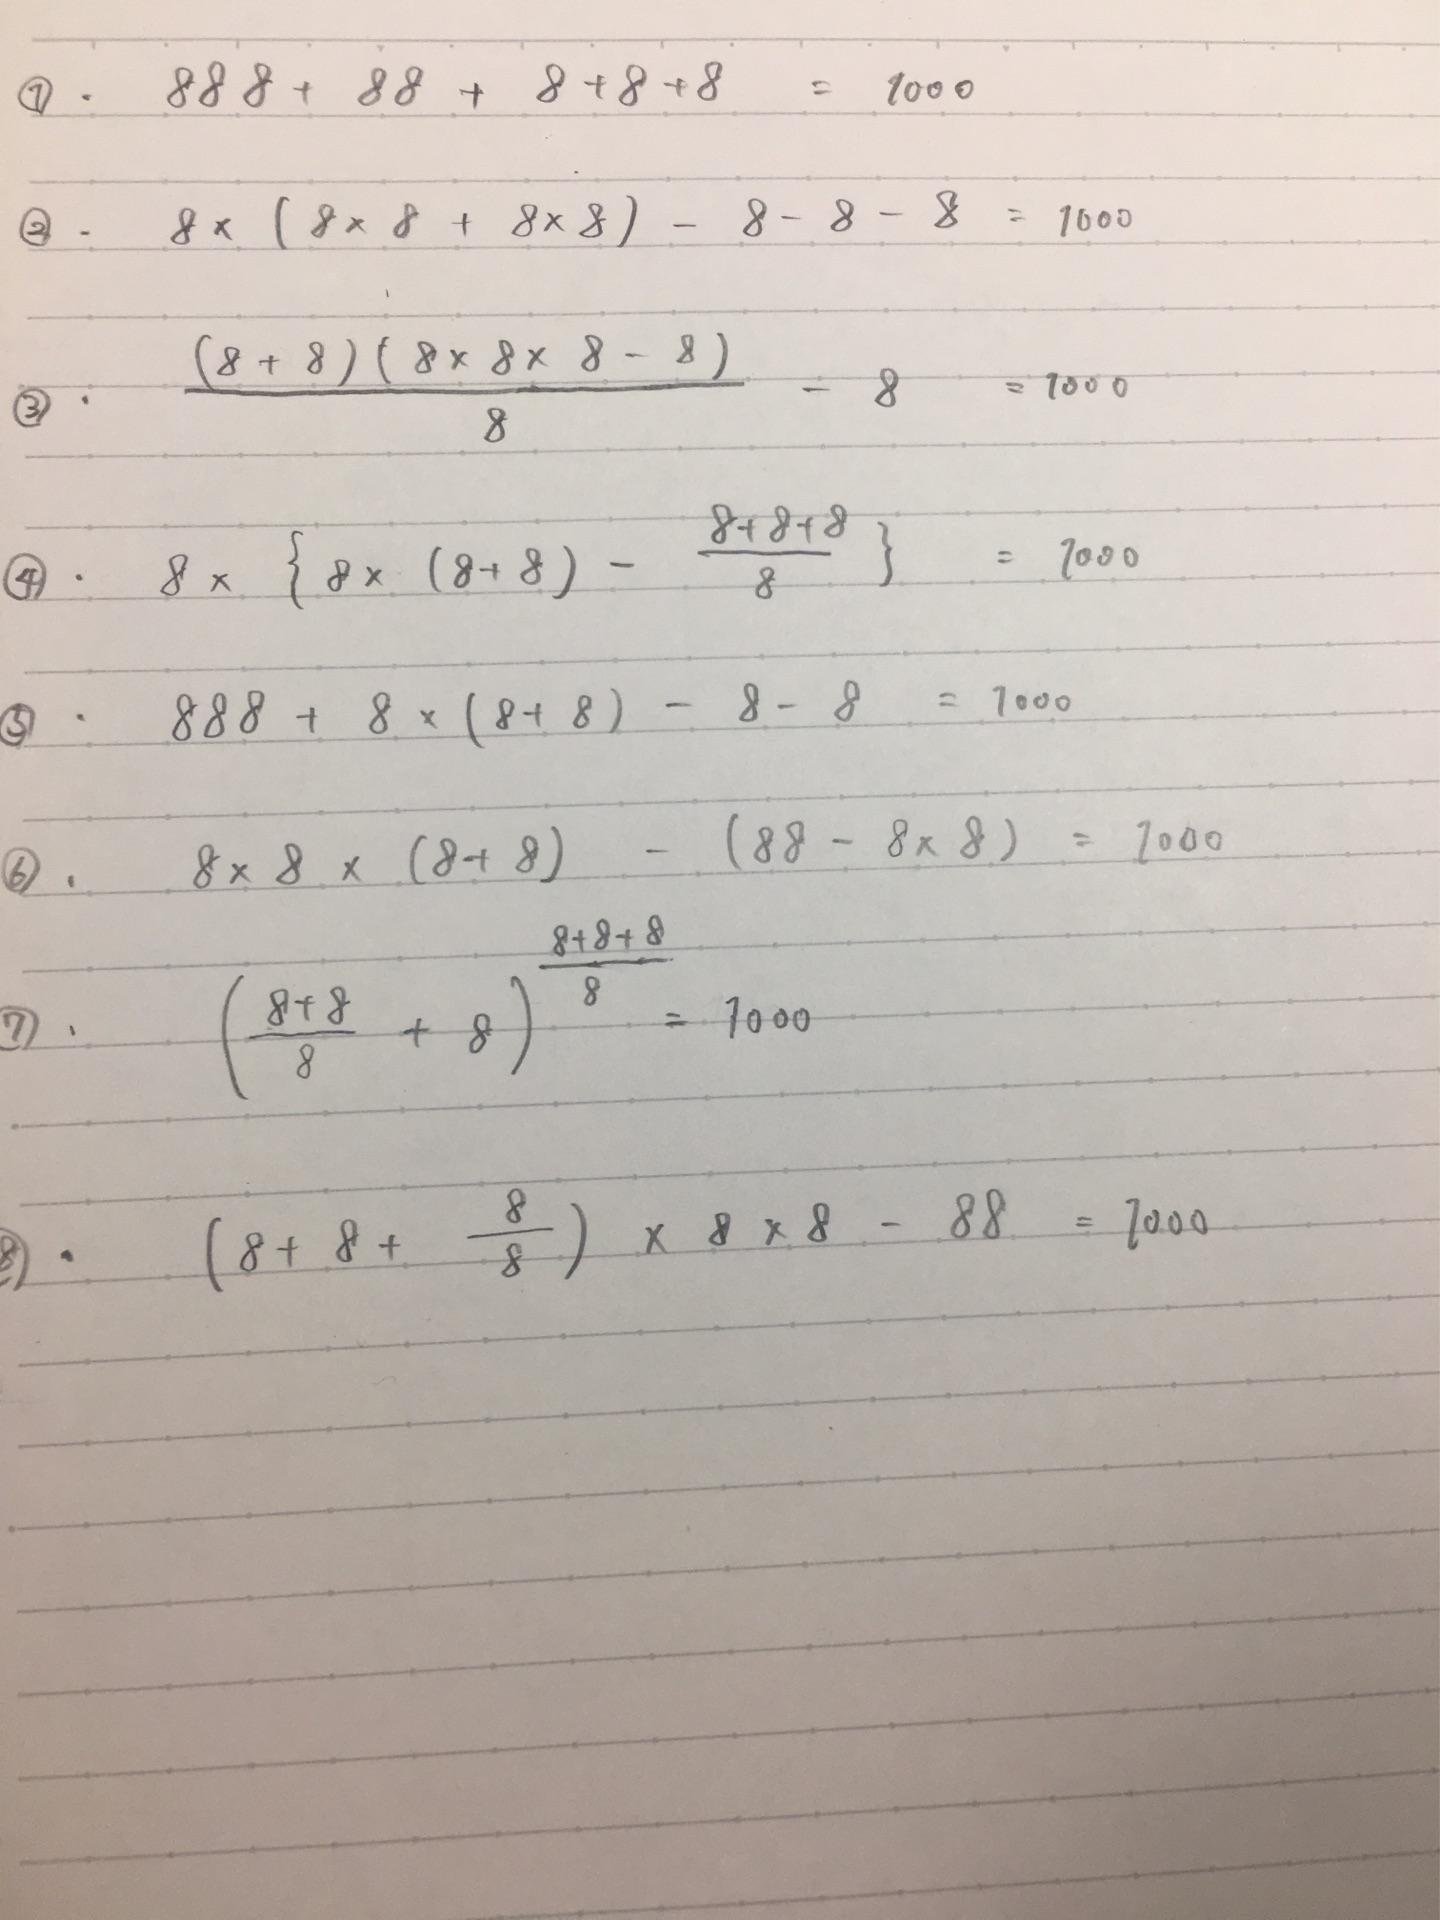 ① . 888 + 88 + 8+8+8 = 1000
② . 8 × ( 8 × 8 + 8 × 8 ) - 8 - 8 - 8 = 1000
③ . (8 + 8) ( 8 × 8 × 8 - 8 ) / 8 - 8 = 1000
④ . 8 × { 8 × (8+8) - (8+8+8)/8 } = 1000
⑤ . 888 + 8 × (8+8) - 8 - 8 = 1000
⑥ . 8 × 8 × (8+8) - (88 - 8 × 8) = 1000
⑦ . ( (8+8)/8 + 8 )^((8+8+8)/8) = 1000
⑧ . (8 + 8 + 8/8) × 8 × 8 - 88 = 1000